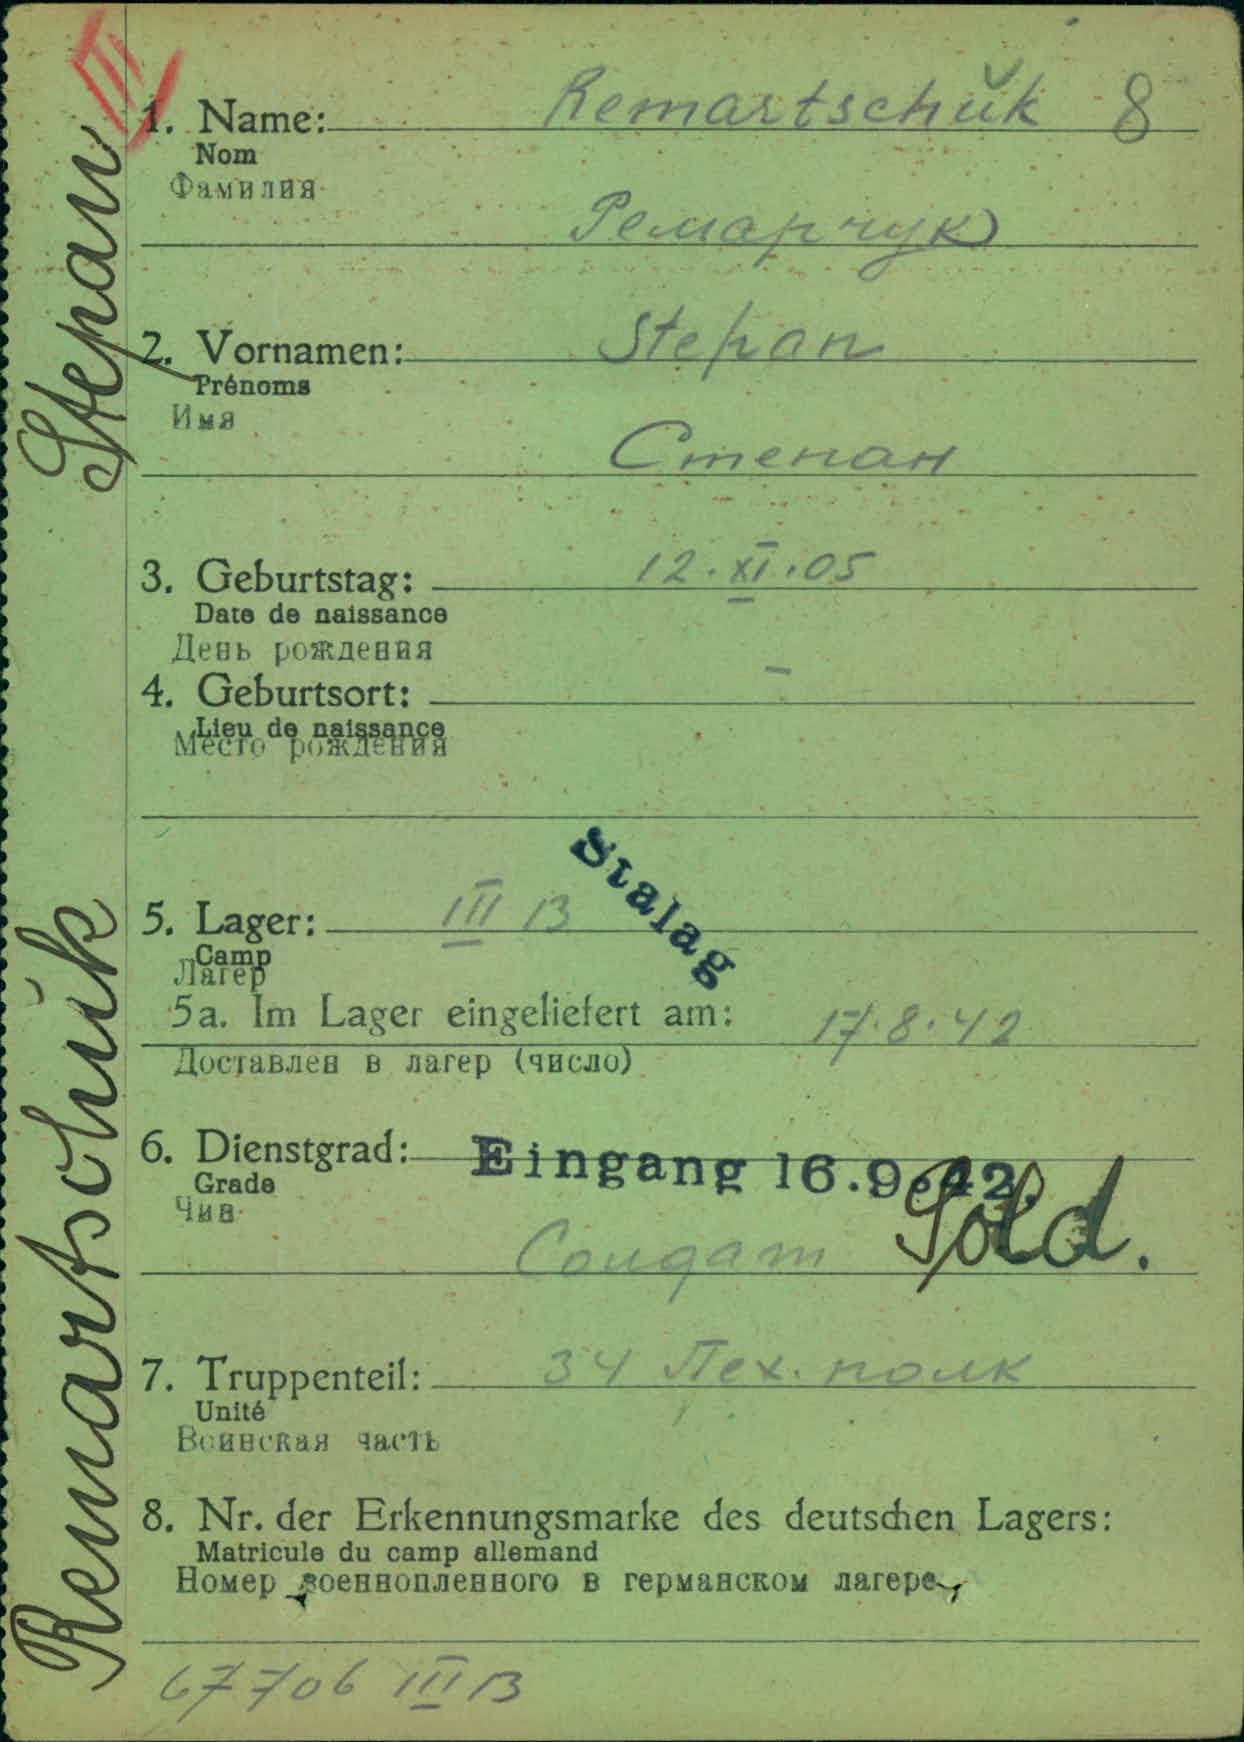 III
1. Name: Remartschŭk 8
Nom
Фамилия
Ремарчук
2. Vornamen: Stepan
Prénoms
Имя
Степан
3. Geburtstag: 12.XI.05
Date de naissance
День рождения
4. Geburtsort: –
Lieu de naissance
Место рождения
Stalag
5. Lager: III B
Camp
Лагер
5a. Im Lager eingeliefert am: 17.8.42
Доставлен в лагер (число)
6. Dienstgrad: Eingang 16.9.42.
Grade
Чин
Солдат Sold.
7. Truppenteil: 34 Пех. полк
Unité
Воинская часть
8. Nr. der Erkennungsmarke des deutschen Lagers:
Matricule du camp allemand
Номер военнопленного в германском лагере
67706 III B
Remartschŭk Stepan